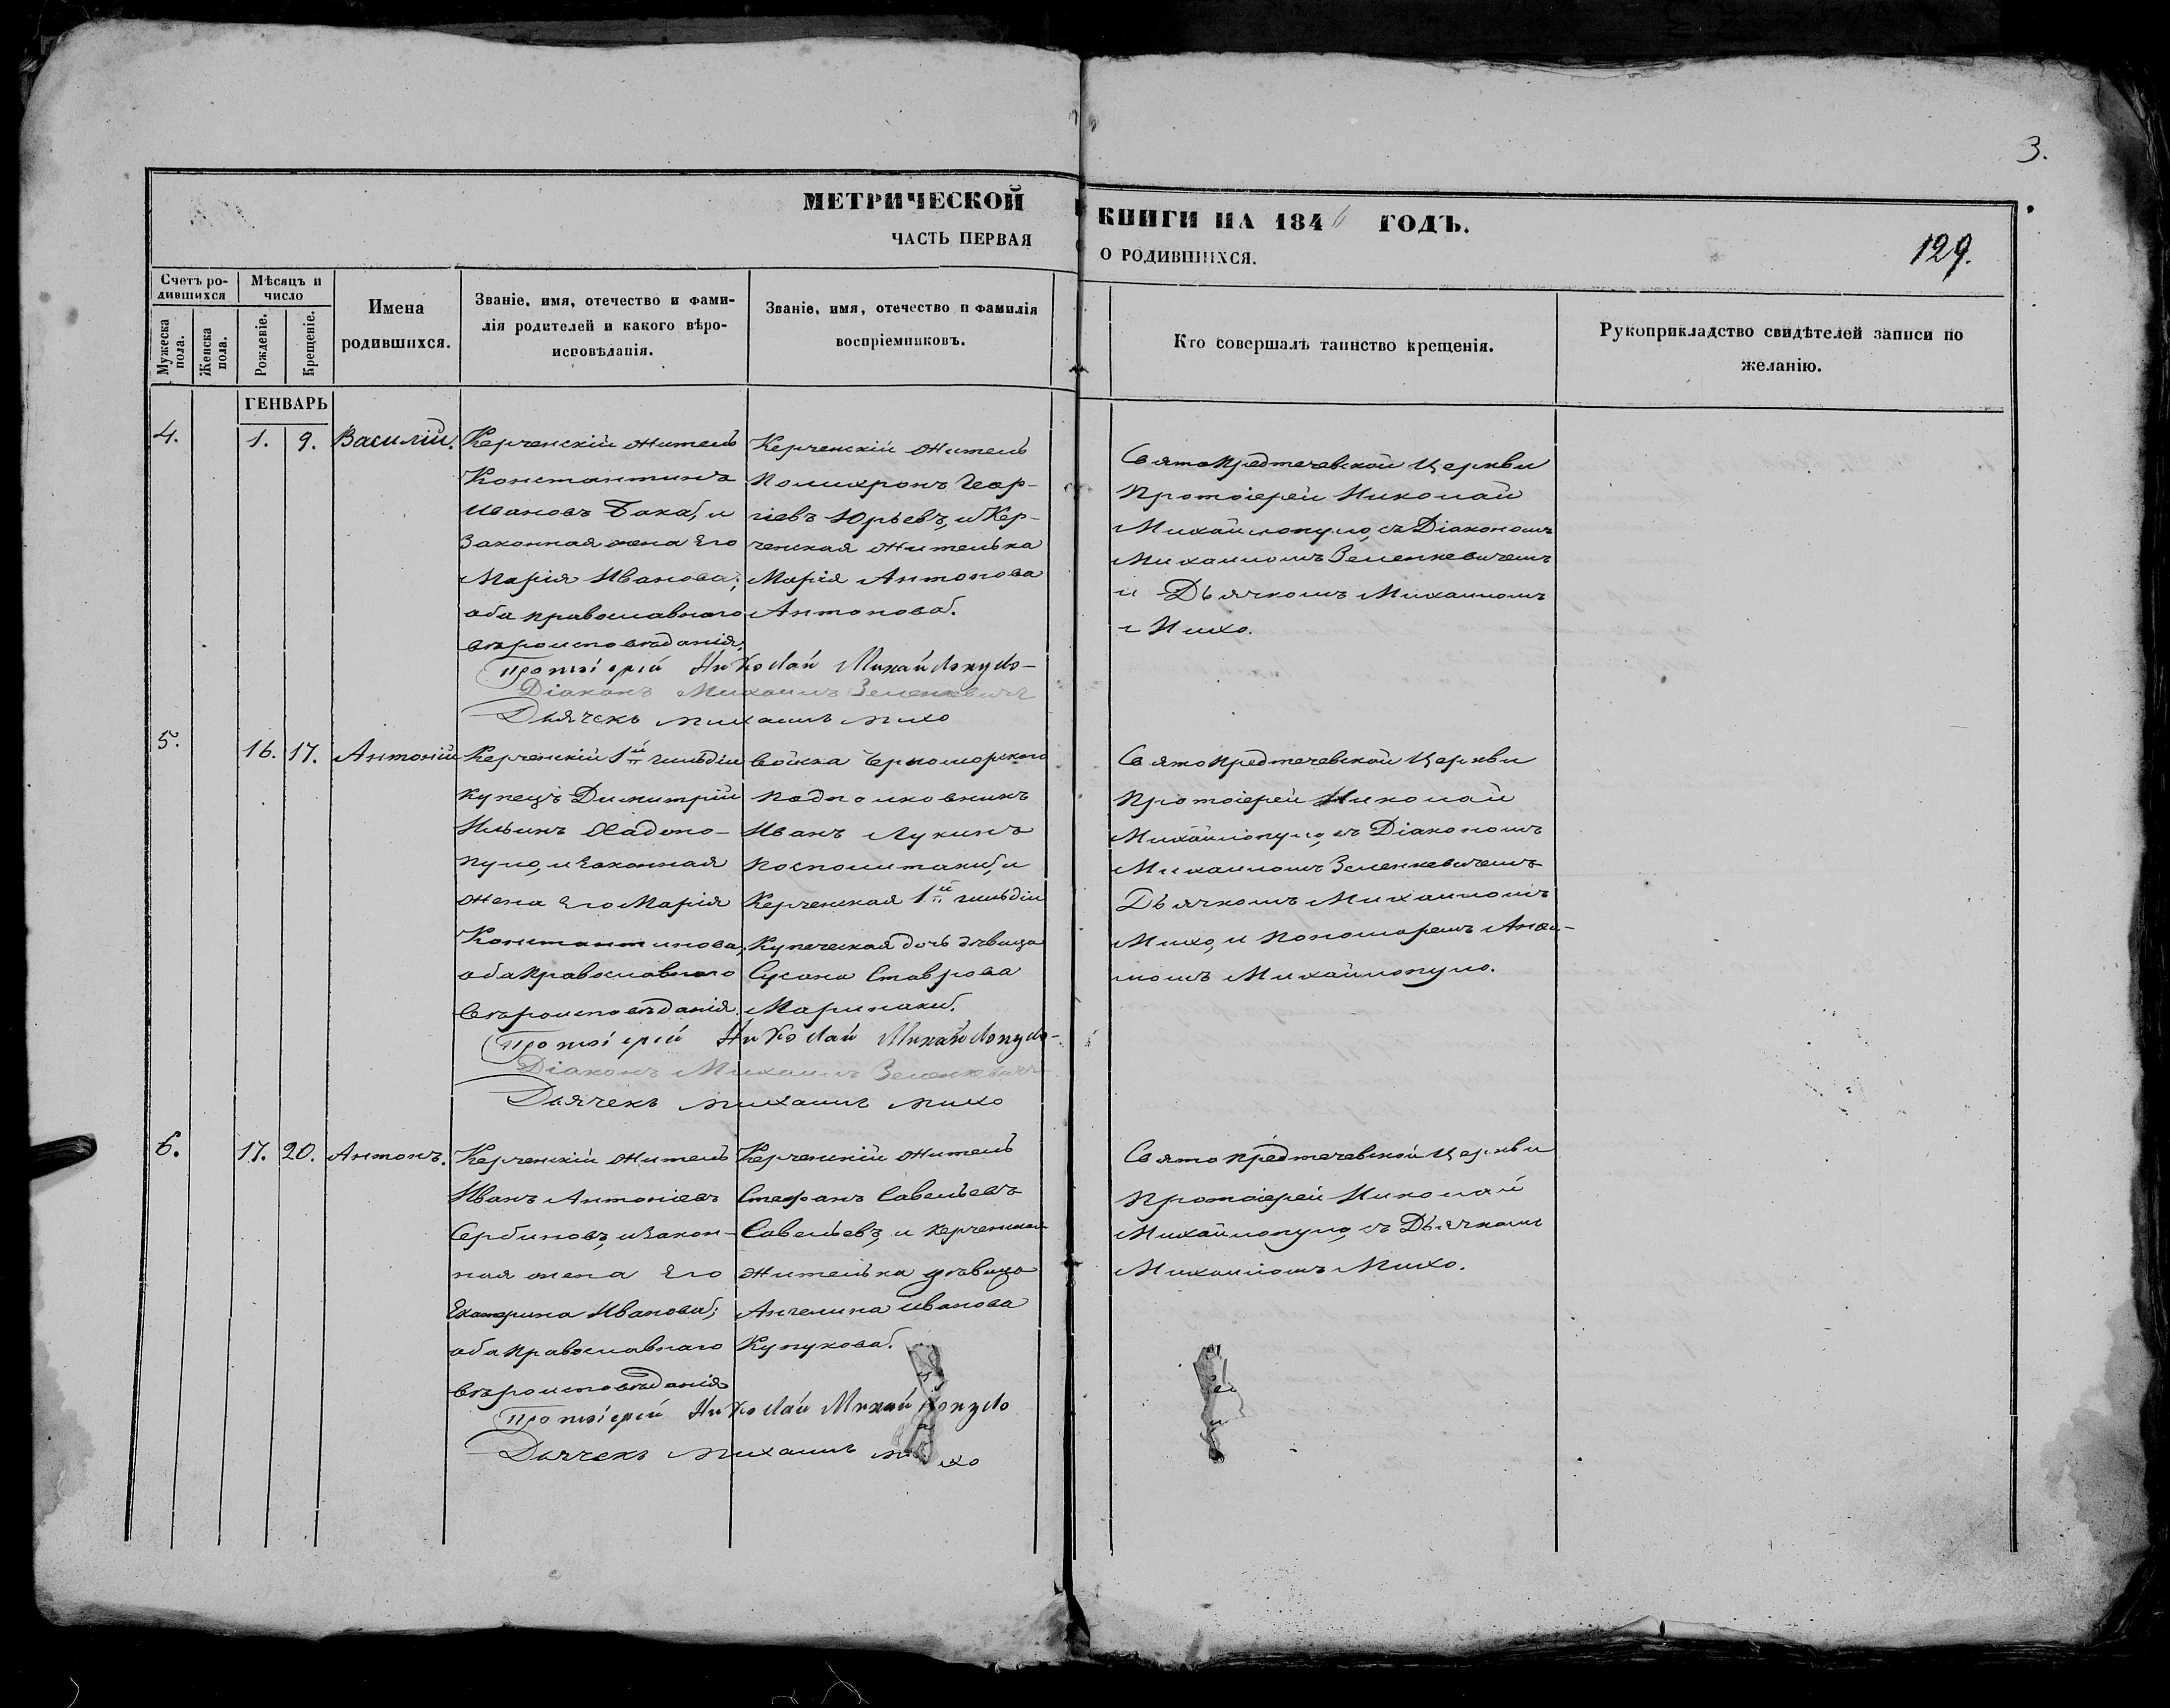 3.
МЕТРИЧЕСКОЙ КНИГИ НА 184 ГОДЪ.
ЧАСТЬ ПЕРВАЯ О РОДИВШИХСЯ.
129.
Счетъ ро-
дившихся
Мужеска пола.
Женска пола.
Мѣсяцъ и
число
Рожденіе.
Крещеніе.
Имена
родившихся.
Званіе, имя, отечество и фами-
лія родителей и какого вѣро-
исповѣданія.
Званіе, имя, отечество и фамилія
воспріемниковъ.
Кто совершалъ таинство крещенія.
Рукоприкладство свидѣтелей записи по
желанію.
ГЕНВАРЬ
4.
1.
9.
Василій.
Керченскій житель
Константинъ
Ивановъ Бака, и
Законная жена Его
Марія Иванова,
оба православнаго
вѣроисповѣданія,
Керченскій житель
Полихронъ Геор-
гіевъ Юрьевъ, и Кер-
ченская жителька
Марія Антонова
Антонова.
Святопредтечевской Церкви
Протоіерей Николай
Михайлопуло, съ Діакономъ
Михаиломъ Зеленкевичемъ
и Дьячкомъ Михаиломъ
Михо.
Протоіерей Николай Михайлопуло
Діаконъ Михаилъ Зеленкевичъ
Дьячекъ михаилъ михо
5.
16.
17.
Антоній
Керченскій 1й гильдіи
купецъ Димитрій
Ильинъ Хаджо-
пуло, и законная
жена Его Марія
Константинова,
оба Православнаго
вѣроисповѣданія.
войска Черноморскаго
Подполковникъ
Иванъ Лукинъ
Посполитаки, и
Керченская 1й гильдіи
Купеческая дочь дѣвица
Сусана Ставрова
Маринаки.
Святопредтечевской Церкви
Протоіерей Николай
Михайлопуло, съ Діакономъ
Михаиломъ Зеленкевичемъ
Дьячкомъ Михаиломъ
Михо, и Пономаремъ
Михайлопуло.
Протоіерей Николай Михайлопуло
Діаконъ Михаилъ Зеленкевичъ
Дьячекъ михаилъ михо
6.
17.
20.
Антонъ.
Керченскій житель
Иванъ Антоніевъ
Сербиновъ, и Закон-
ная жена Его
Екатерина Иванова;
оба православнаго
вѣроисповѣданія
Керченскій житель
Стефанъ Савельевъ
Савельевъ, и Керченская
жителька дѣвица
Ангелина Иванова
Купукова.
Святопредтечевской Церкви
Протоіерей Николай
Михайлопуло, съ Дьячкомъ
Михаиломъ Михо.
Протоіерей Николай Михайлопуло
Дьячекъ михаилъ михо